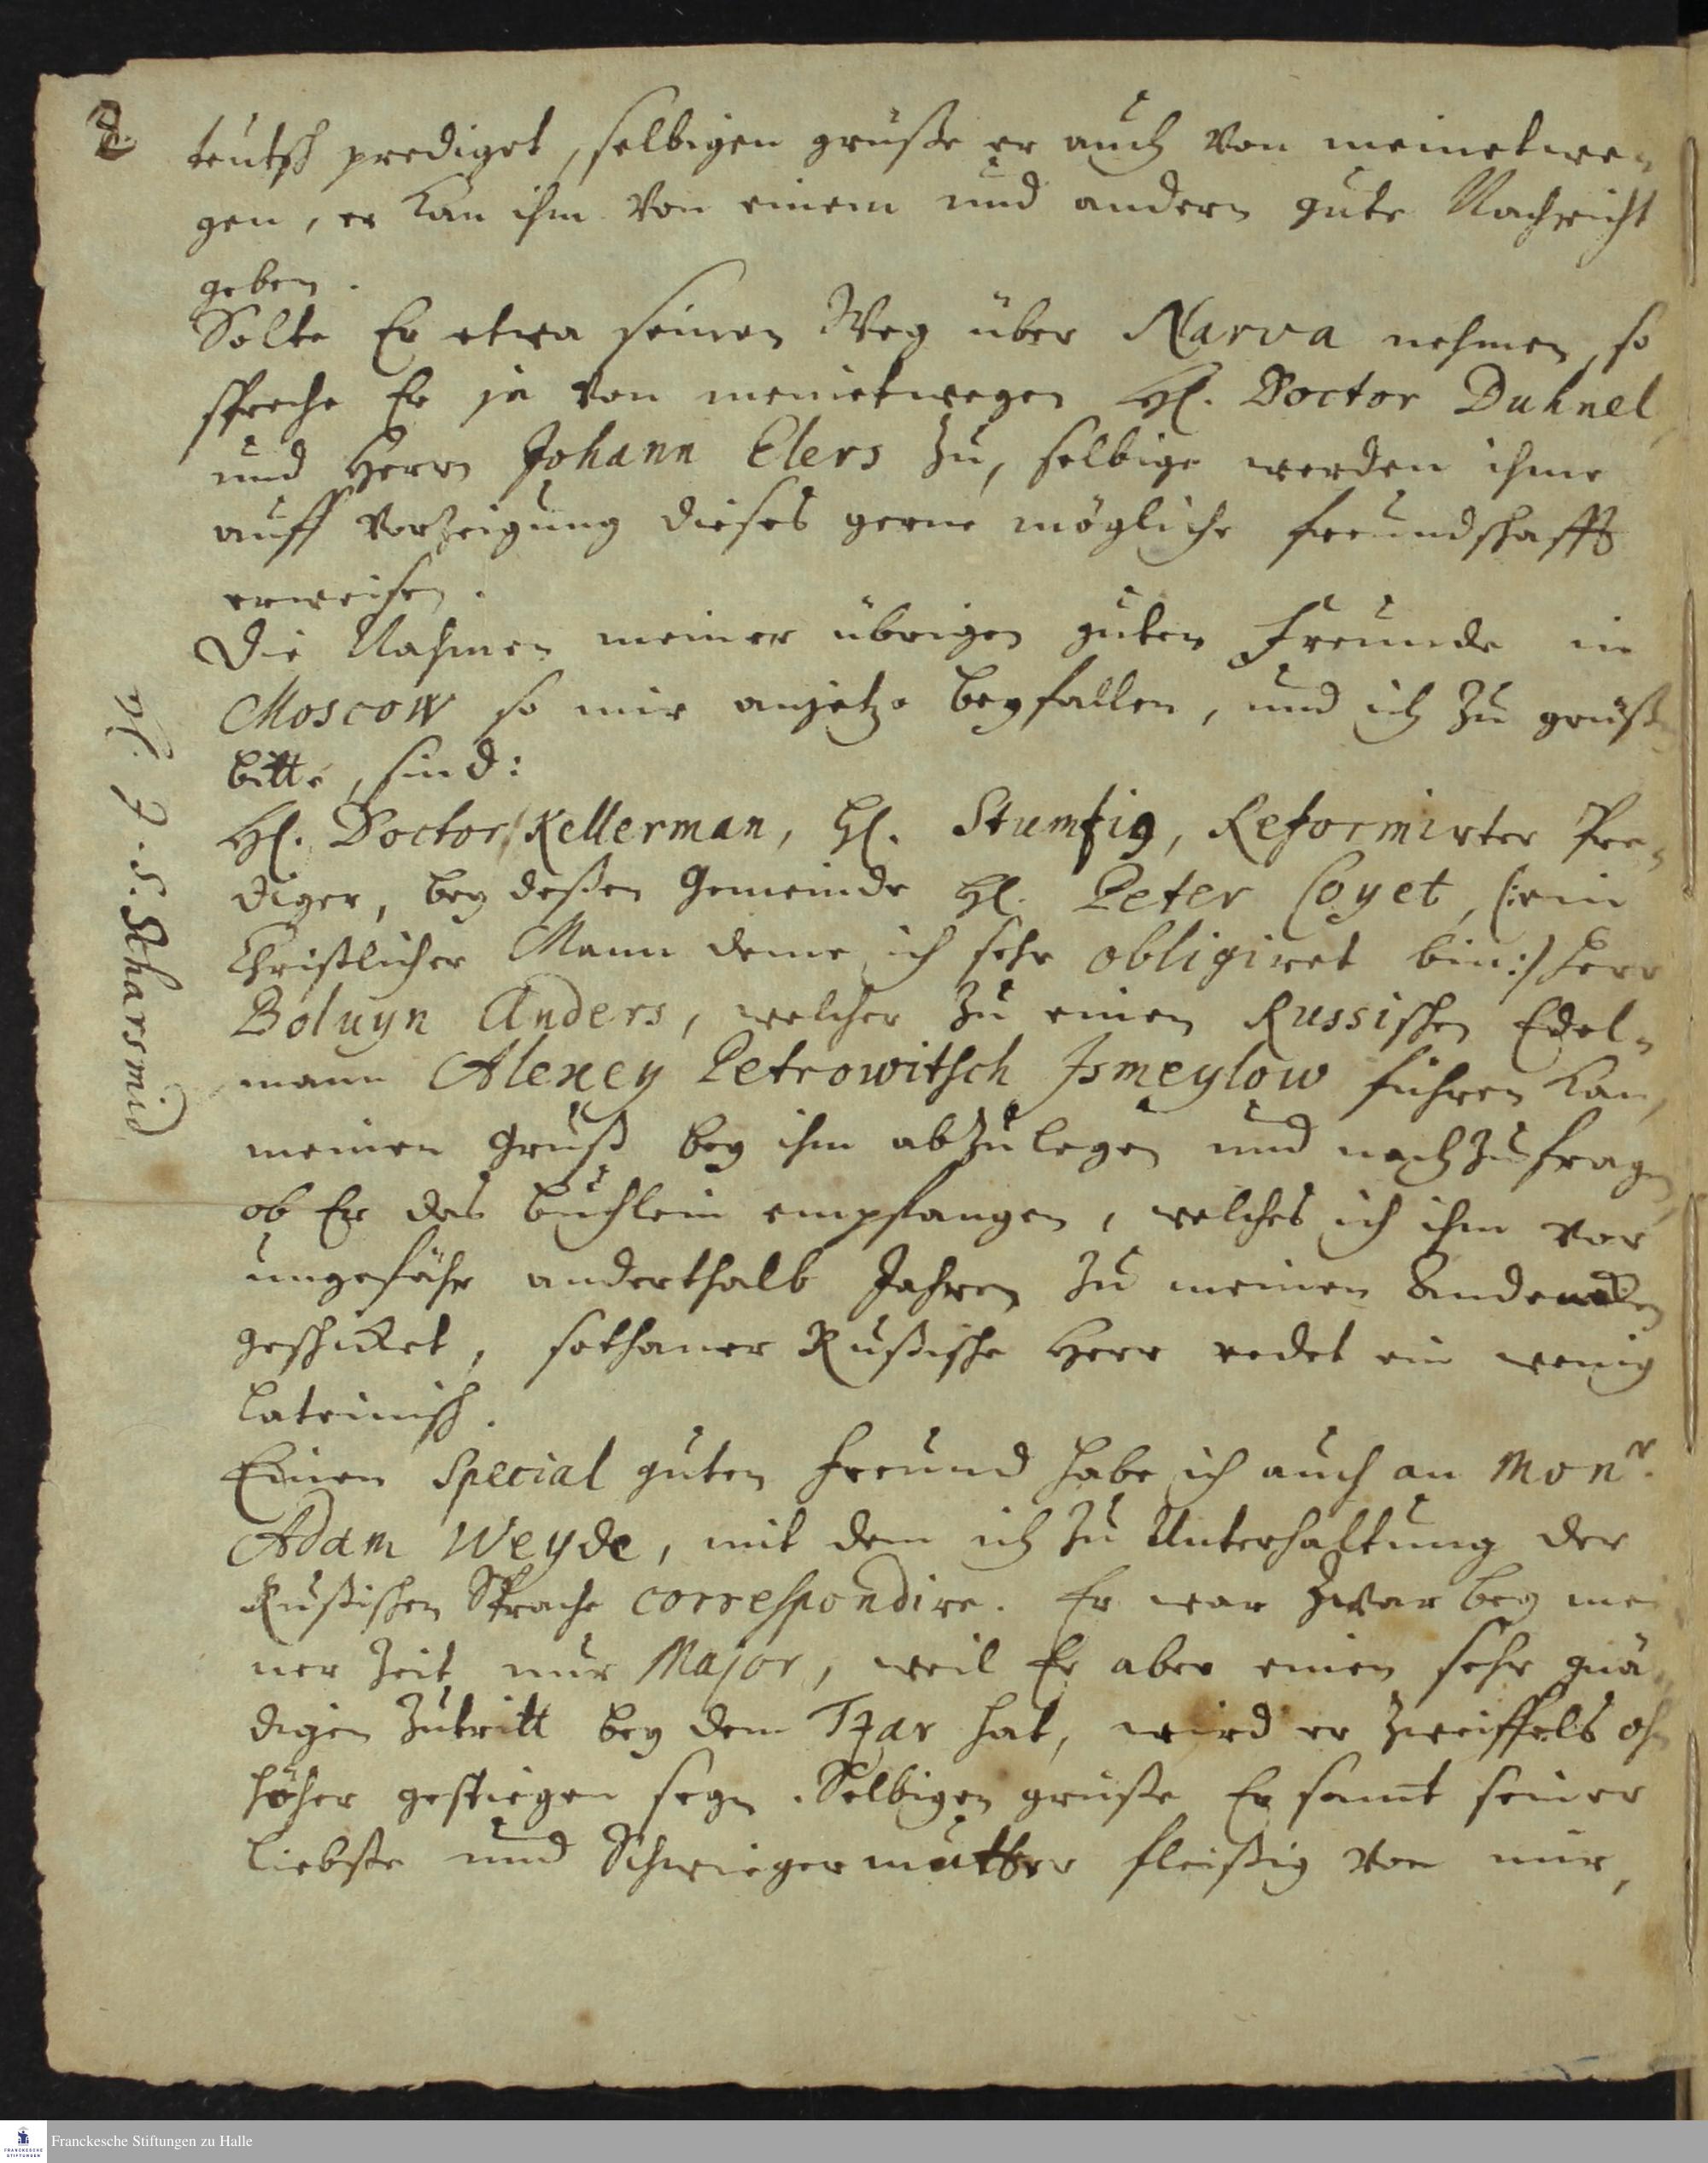 2.
teutsch prediget, selbigen grüße er auch von meinetwe-
gen, er kan ihm von einem und andern gute Nachricht
geben.
Solte Er etwa seinen Weg über Narva nehmen, so
spreche Er ja von meinetwegen Hl. Doctor Duhnel
und Herrn Johann Elers zu, selbige werden ihme
auff Vorzeigung dieses gerne mögliche freundschafft
erweisen.
Die Nahmen meiner übrigen guten Freunde in
Moscow so mir anjetzo beyfallen, und ich zu grüßen
bitte, sind:
Hl. Doctor Kellerman, Hl. Stumfig, Reformirter Pre-
diger, bey deßen Gemeinde Hl. Peter Coyet, (:ein
Christlicher Mann deme ich sehr obligiret bin:) Herr
Boluyn Anders, welcher zu einen Russischen Edel-
mann Alexey Petrowitsch Ismeylow führen kan,
meinen Gruß bey ihm abzulegen und nachzufragen
ob Er das büchlein empfangen, welches ich ihm vor
ungefähr anderthalb Jahren zu meinen Andencken
geschicket, sothaner Rußische Herr redet ein wenig
lateinisch.
Einen Special guten Freund habe ich auch an Monr.
Adam Weyde, mit dem ich zu Unterhaltung der
Rußischen Sprache correspondire. Er war zwar bey mei
ner Zeit nur Major, weil Er aber einen sehr gnä-
digen Zutritt bey dem Tzar hat, wird er zweiffels oh
höher gestiegen seyn. Selbigen grüße Er samt seiner
liebste und Schwiegermutter fleißig von mir,
H. J. S. Scharsmid
Franckesche Stiftungen zu Halle
FRANCKESCHE STIFTUNGEN